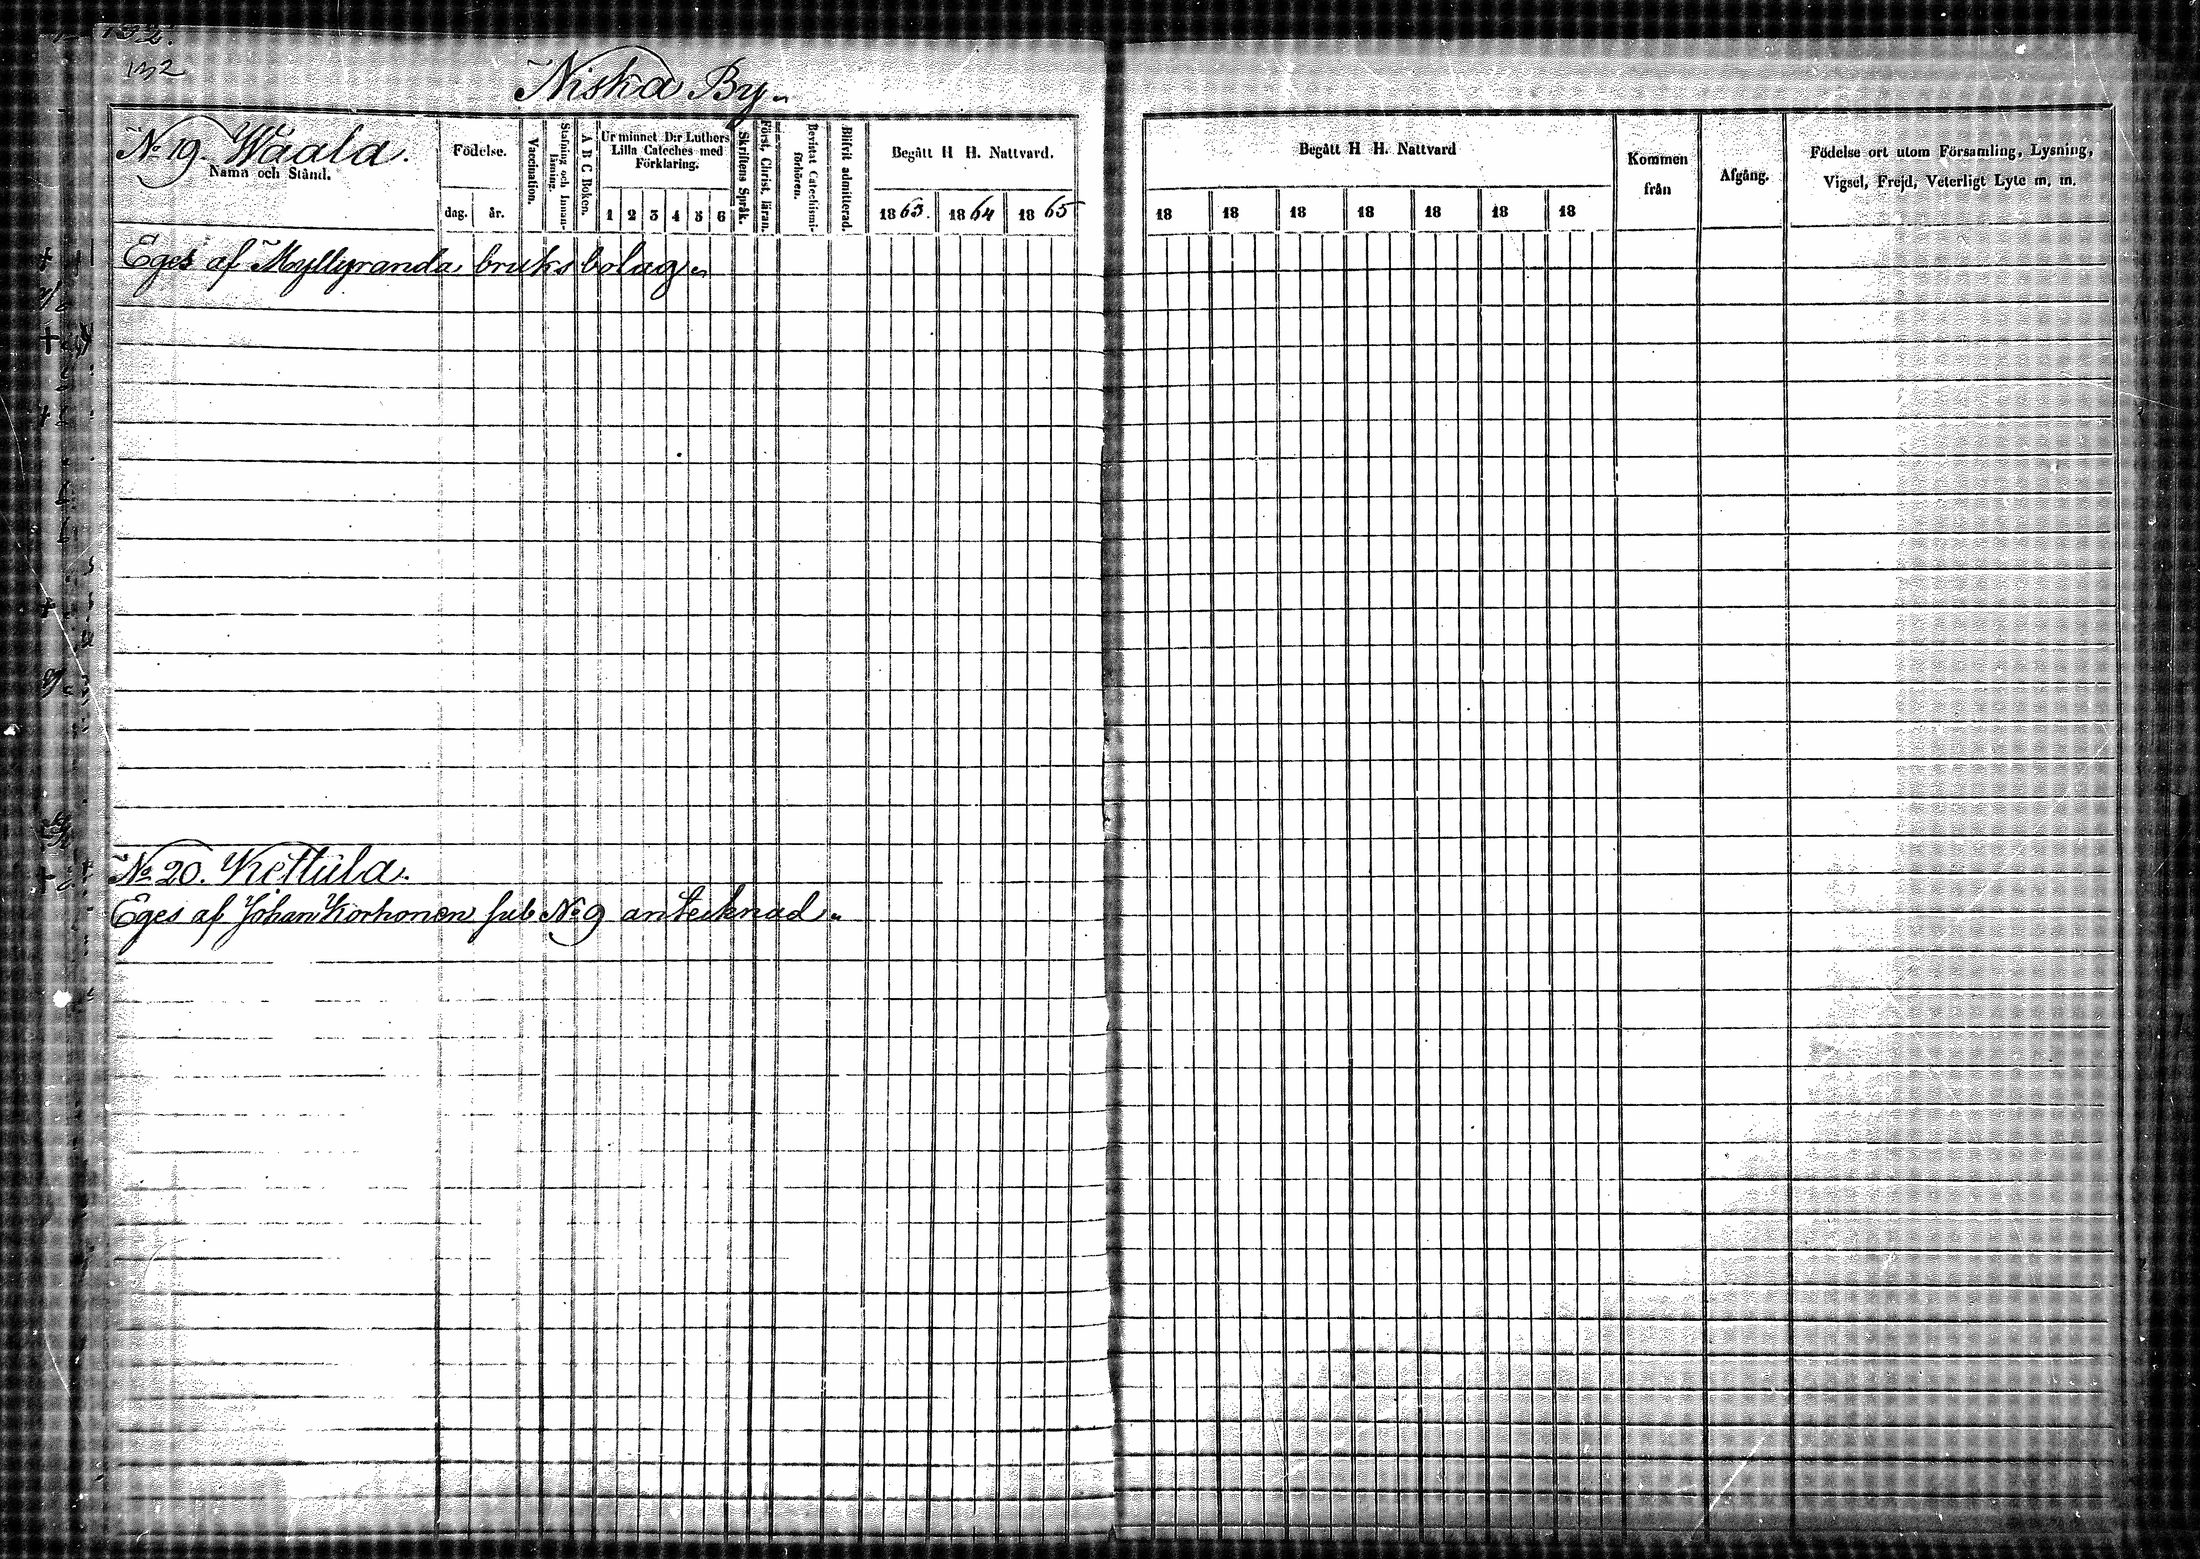 132.
132
Niska By.
No 19. Waala.
Namn och Stånd.
Födelse.
dag. år.
Vaccination.
Stafning och Innan-läsning.
A B C Boken.
Ur minnet D:r Luthers
Lilla Cateches med
Förklaring.
1 2 3 4 5 6
Skriftens Språk.
Först. Christ. läran.
Bevistat Catechismi-förhören.
Blifvit admitterad.
Begått H H. Nattvard.
1863. 1864 1865
Begått H H. Nattvard
18 18 18 18 18 18 18
Kommen
från
Afgång.
Födelse ort utom Församling, Lysning,
Vigsel, Frejd, Veterligt Lyte m. m.
Eges af Myllyranda bruks bolag.
No 20. Kettula.
Eges af Johan Korhonen sub No 9 antecknad.